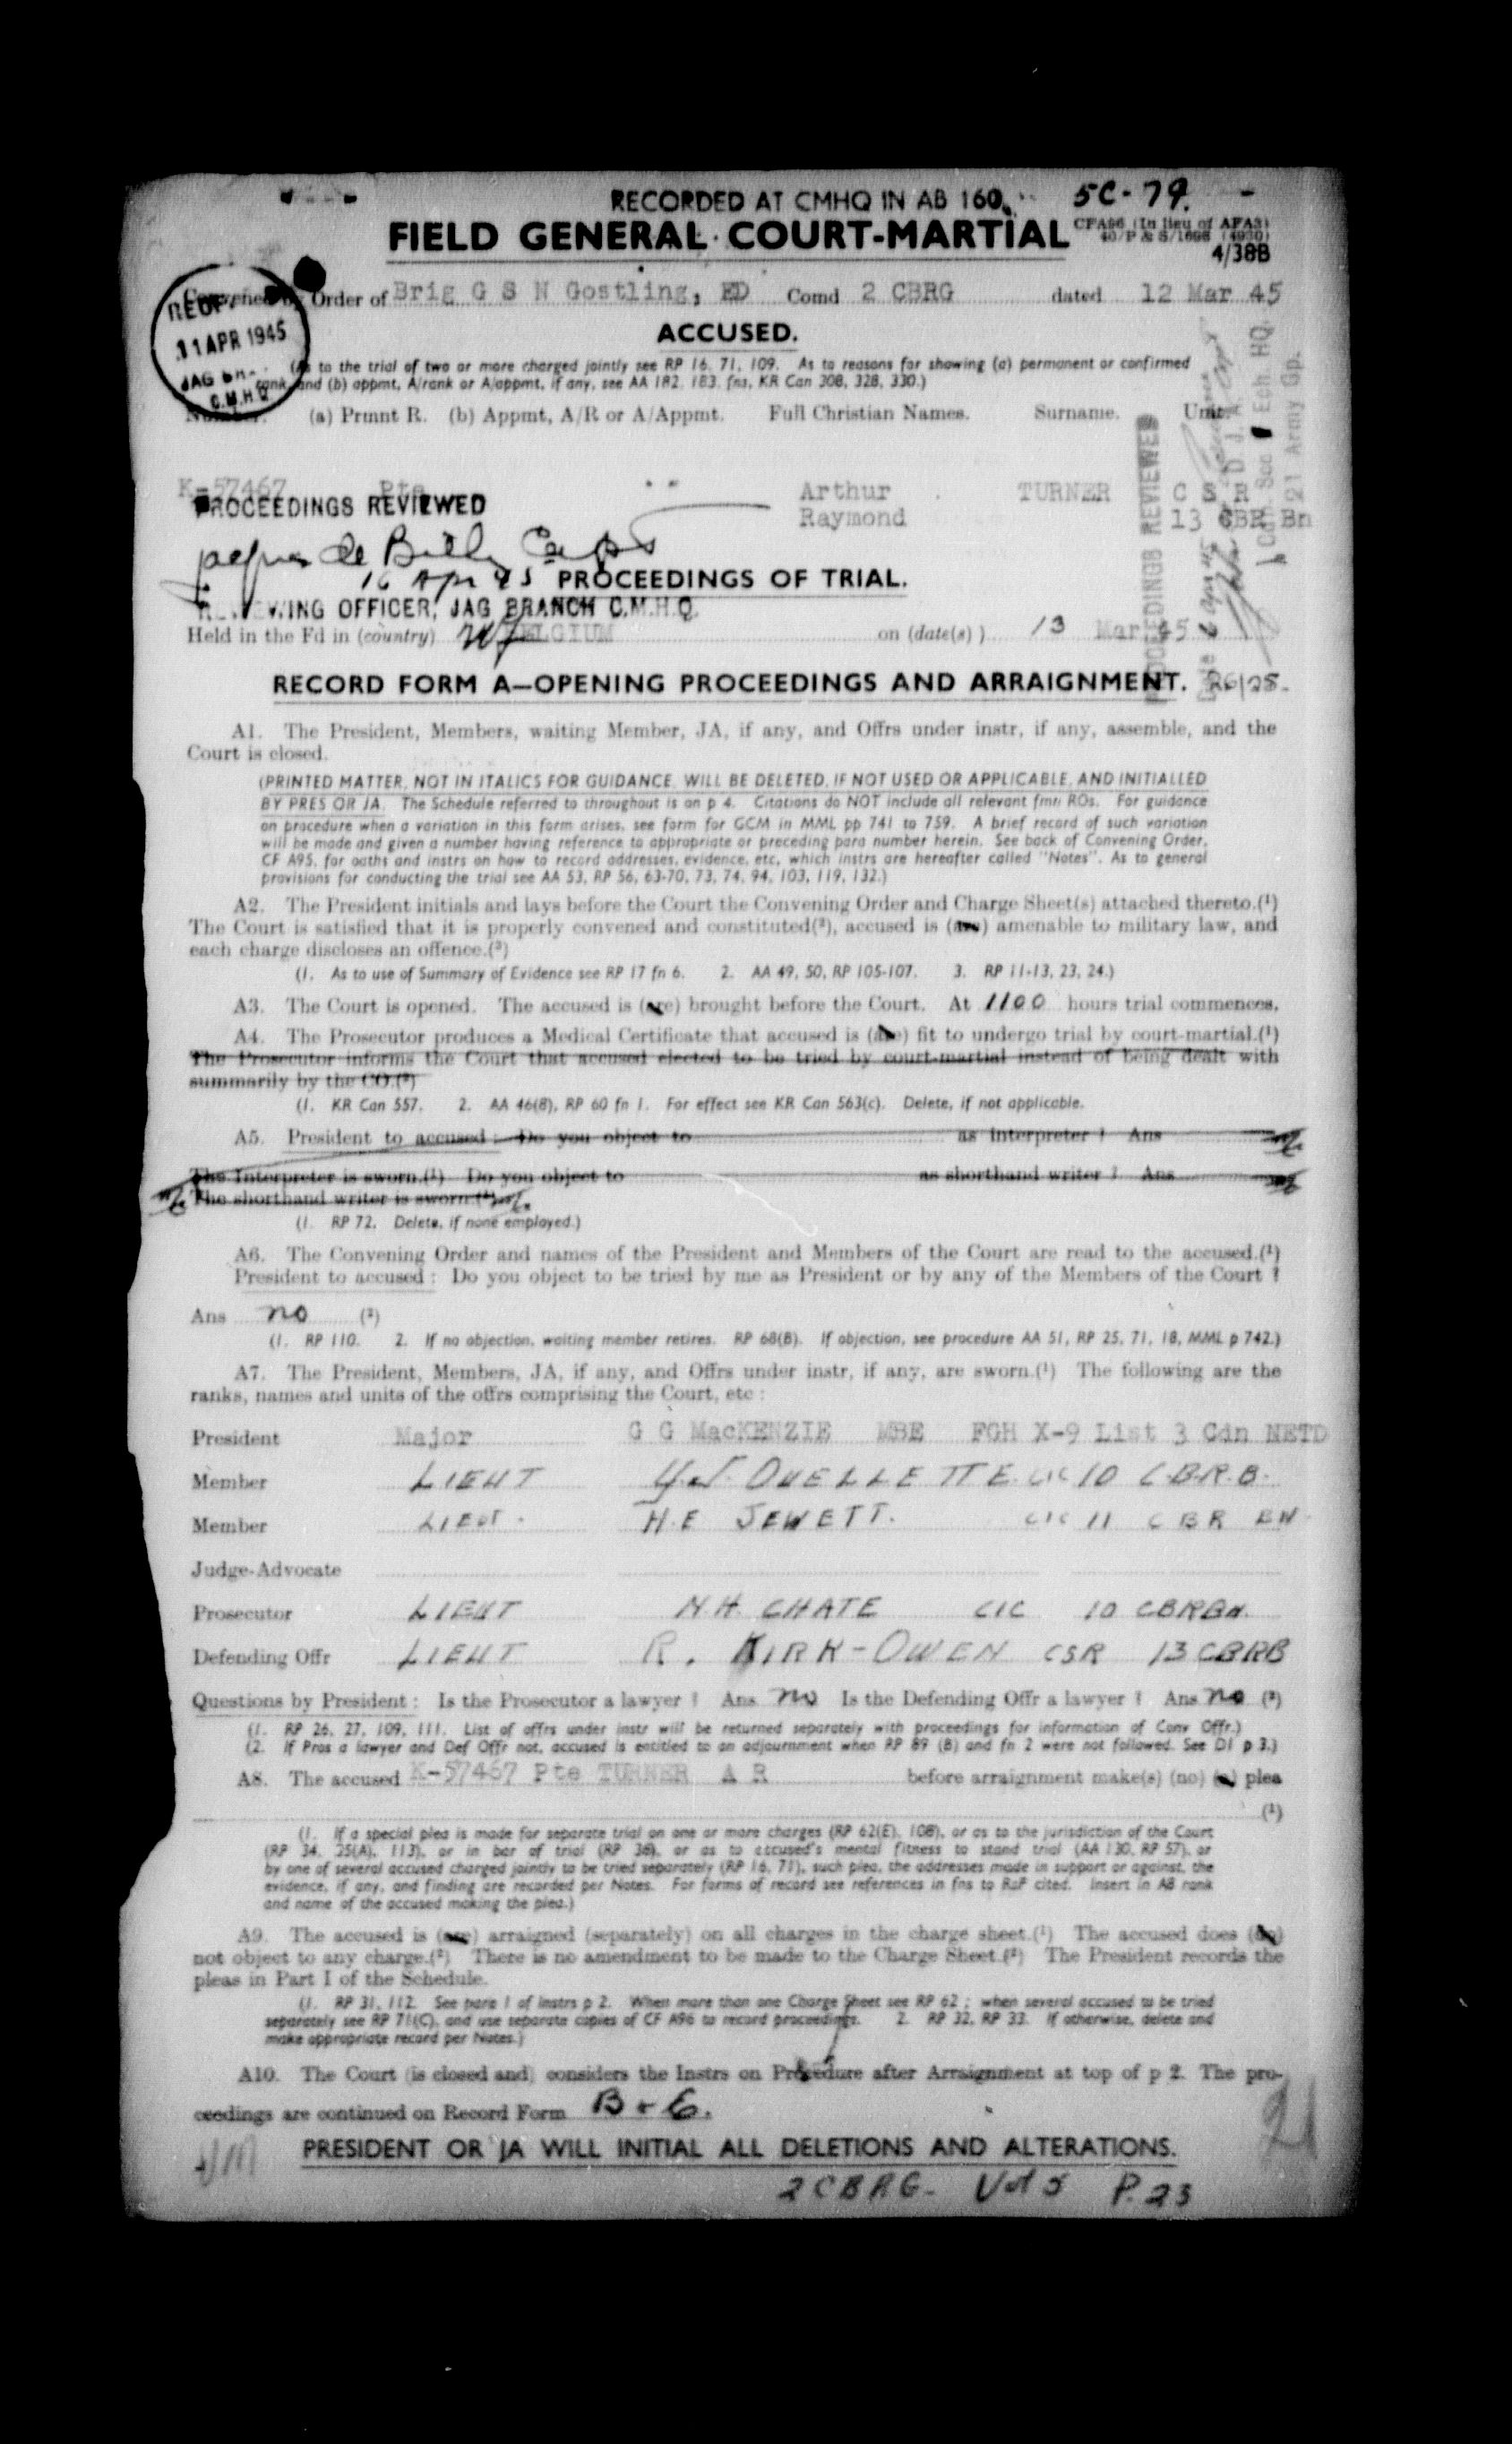 RECORDED AT CMHQ IN AB 160. 5C-79.
FIELD GENERAL COURT-MARTIAL
CFA96 (In lieu of AFA3)
40/P & S/1698 (4930)
4/38B
Convened by Order of Brig G S N Gostling, ED Comd 2 CBRG dated 12 Mar 45
11 APR 1945
JAG
C.M.H.Q
ACCUSED.
(As to the trial of two or more charged jointly see RP 16, 71, 109. As to reasons for showing (a) permanent or confirmed
rank and (b) appmt, A/rank or A/appmt, if any, see AA 182, 183, fns, KR Can 308, 328, 330.)
Number. (a) Prmnt R. (b) Appmt, A/R or A/Appmt. Full Christian Names. Surname. Unit.
K-57467 Pte Arthur TURNER C S R
Raymond 13 CBR Bn
PROCEEDINGS REVIEWED
16 Apr 45 PROCEEDINGS OF TRIAL.
REVIEWING OFFICER, JAG BRANCH C.M.H.Q.
PROCEEDINGS REVIEWED
21 Army Gp.
Held in the Fd in (country) BELGIUM on (date(s)) 13 Mar 45
RECORD FORM A—OPENING PROCEEDINGS AND ARRAIGNMENT.
A1. The President, Members, waiting Member, JA, if any, and Offrs under instr, if any, assemble, and the
Court is closed.
(PRINTED MATTER, NOT IN ITALICS FOR GUIDANCE, WILL BE DELETED, IF NOT USED OR APPLICABLE, AND INITIALLED
BY PRES OR JA. The Schedule referred to throughout is on p 4. Citations do NOT include all relevant fmn ROs. For guidance
on procedure when a variation in this form arises, see form for GCM in MML pp 741 to 759. A brief record of such variation
will be made and given a number having reference to appropriate or preceding para number herein. See back of Convening Order,
CF A95, for oaths and instrs on how to record addresses, evidence, etc, which instrs are hereafter called "Notes". As to general
provisions for conducting the trial see AA 53, RP 56, 63-70, 73, 74, 94, 103, 119, 132.)
A2. The President initials and lays before the Court the Convening Order and Charge Sheet(s) attached thereto.(¹)
The Court is satisfied that it is properly convened and constituted(²), accused is (are) amenable to military law, and
each charge discloses an offence.(³)
(1. As to use of Summary of Evidence see RP 17 fn 6. 2. AA 49, 50, RP 105-107. 3. RP 11-13, 23, 24.)
A3. The Court is opened. The accused is (are) brought before the Court. At 1100 hours trial commences.
A4. The Prosecutor produces a Medical Certificate that accused is (are) fit to undergo trial by court-martial.(¹)
The Prosecutor informs the Court that accused elected to be tried by court-martial instead of being dealt with
summarily by the CO.(²)
(1. KR Can 557. 2. AA 46(8), RP 60 fn 1. For effect see KR Can 563(c). Delete, if not applicable.
A5. President to accused : Do you object to as interpreter ? Ans
The Interpreter is sworn.(¹) Do you object to as shorthand writer ? Ans
The shorthand writer is sworn.(¹)
(1. RP 72. Delete, if none employed.)
A6. The Convening Order and names of the President and Members of the Court are read to the accused.(¹)
President to accused : Do you object to be tried by me as President or by any of the Members of the Court ?
Ans no (²)
(1. RP 110. 2. If no objection, waiting member retires. RP 68(B). If objection, see procedure AA 51, RP 25, 71, 18, MML p 742.)
A7. The President, Members, JA, if any, and Offrs under instr, if any, are sworn.(¹) The following are the
ranks, names and units of the offrs comprising the Court, etc :
President Major G G MacKENZIE MBE FGH X-9 List 3 Cdn NETD
Member LIEUT OUELLETTE CIC 10 C.B.R.B.
Member LIEUT. H.E JEWETT. CIC 11 C B R BN
Judge-Advocate
Prosecutor LIEUT N.H. CHATE CIC 10 CBRBn.
Defending Offr LIEUT R. KIRK-OWEN CSR 13 CBRB
Questions by President : Is the Prosecutor a lawyer ? Ans no Is the Defending Offr a lawyer ? Ans no (²)
(1. RP 26, 27, 109, 111. List of offrs under instr will be returned separately with proceedings for information of Conv Offr.)
(2. If Pros a lawyer and Def Offr not, accused is entitled to an adjournment when RP 89 (B) and fn 2 were not followed. See D1 p 3.)
A8. The accused K-57467 Pte TURNER A R before arraignment make(s) (no) (a) plea
(¹)
(1. If a special plea is made for separate trial on one or more charges (RP 62(E), 108), or as to the jurisdiction of the Court
(RP 34, 35(A), 113), or in bar of trial (RP 36), or as to accused's mental fitness to stand trial (AA 130, RP 57), or
by one of several accused charged jointly to be tried separately (RP 16, 71), such plea, the addresses made in support or against, the
evidence, if any, and finding are recorded per Notes. For forms of record see references in fns to RsP cited. Insert in A8 rank
and name of the accused making the plea.)
A9. The accused is (are) arraigned (separately) on all charges in the charge sheet.(¹) The accused does (do)
not object to any charge.(²) There is no amendment to be made to the Charge Sheet.(²) The President records the
pleas in Part I of the Schedule.
(1. RP 31, 112. See para 1 of Instrs p 2. When more than one Charge Sheet see RP 62 ; when several accused to be tried
separately see RP 71(C), and use separate copies of CF A96 to record proceedings. 2. RP 32, RP 33. If otherwise, delete and
make appropriate record per Notes.)
A10. The Court (is closed and) considers the Instrs on Procedure after Arraignment at top of p 2. The pro-
ceedings are continued on Record Form B + E.
PRESIDENT OR JA WILL INITIAL ALL DELETIONS AND ALTERATIONS.
21
2 CBRG- Vol 5 P. 23